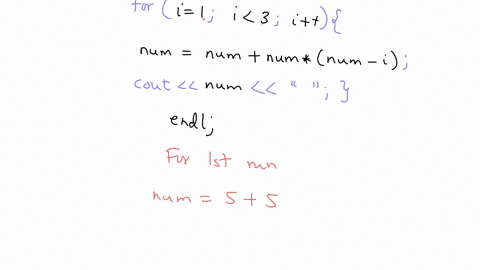 for ( i=1; i < 3; i++){
num = num + num* (num - i);
cout << num << " "; }
endl;
For 1st run
num = 5 + 5